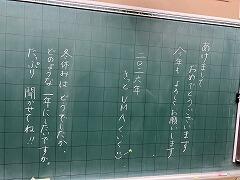 あけまして
おめでとうございます
今年も よろしくお願いします
二〇一九年
きっと UMAくいく
冬休みは どうでしたか
どのような 一年にしたいですか。
たっぷり 聞かせてね!!